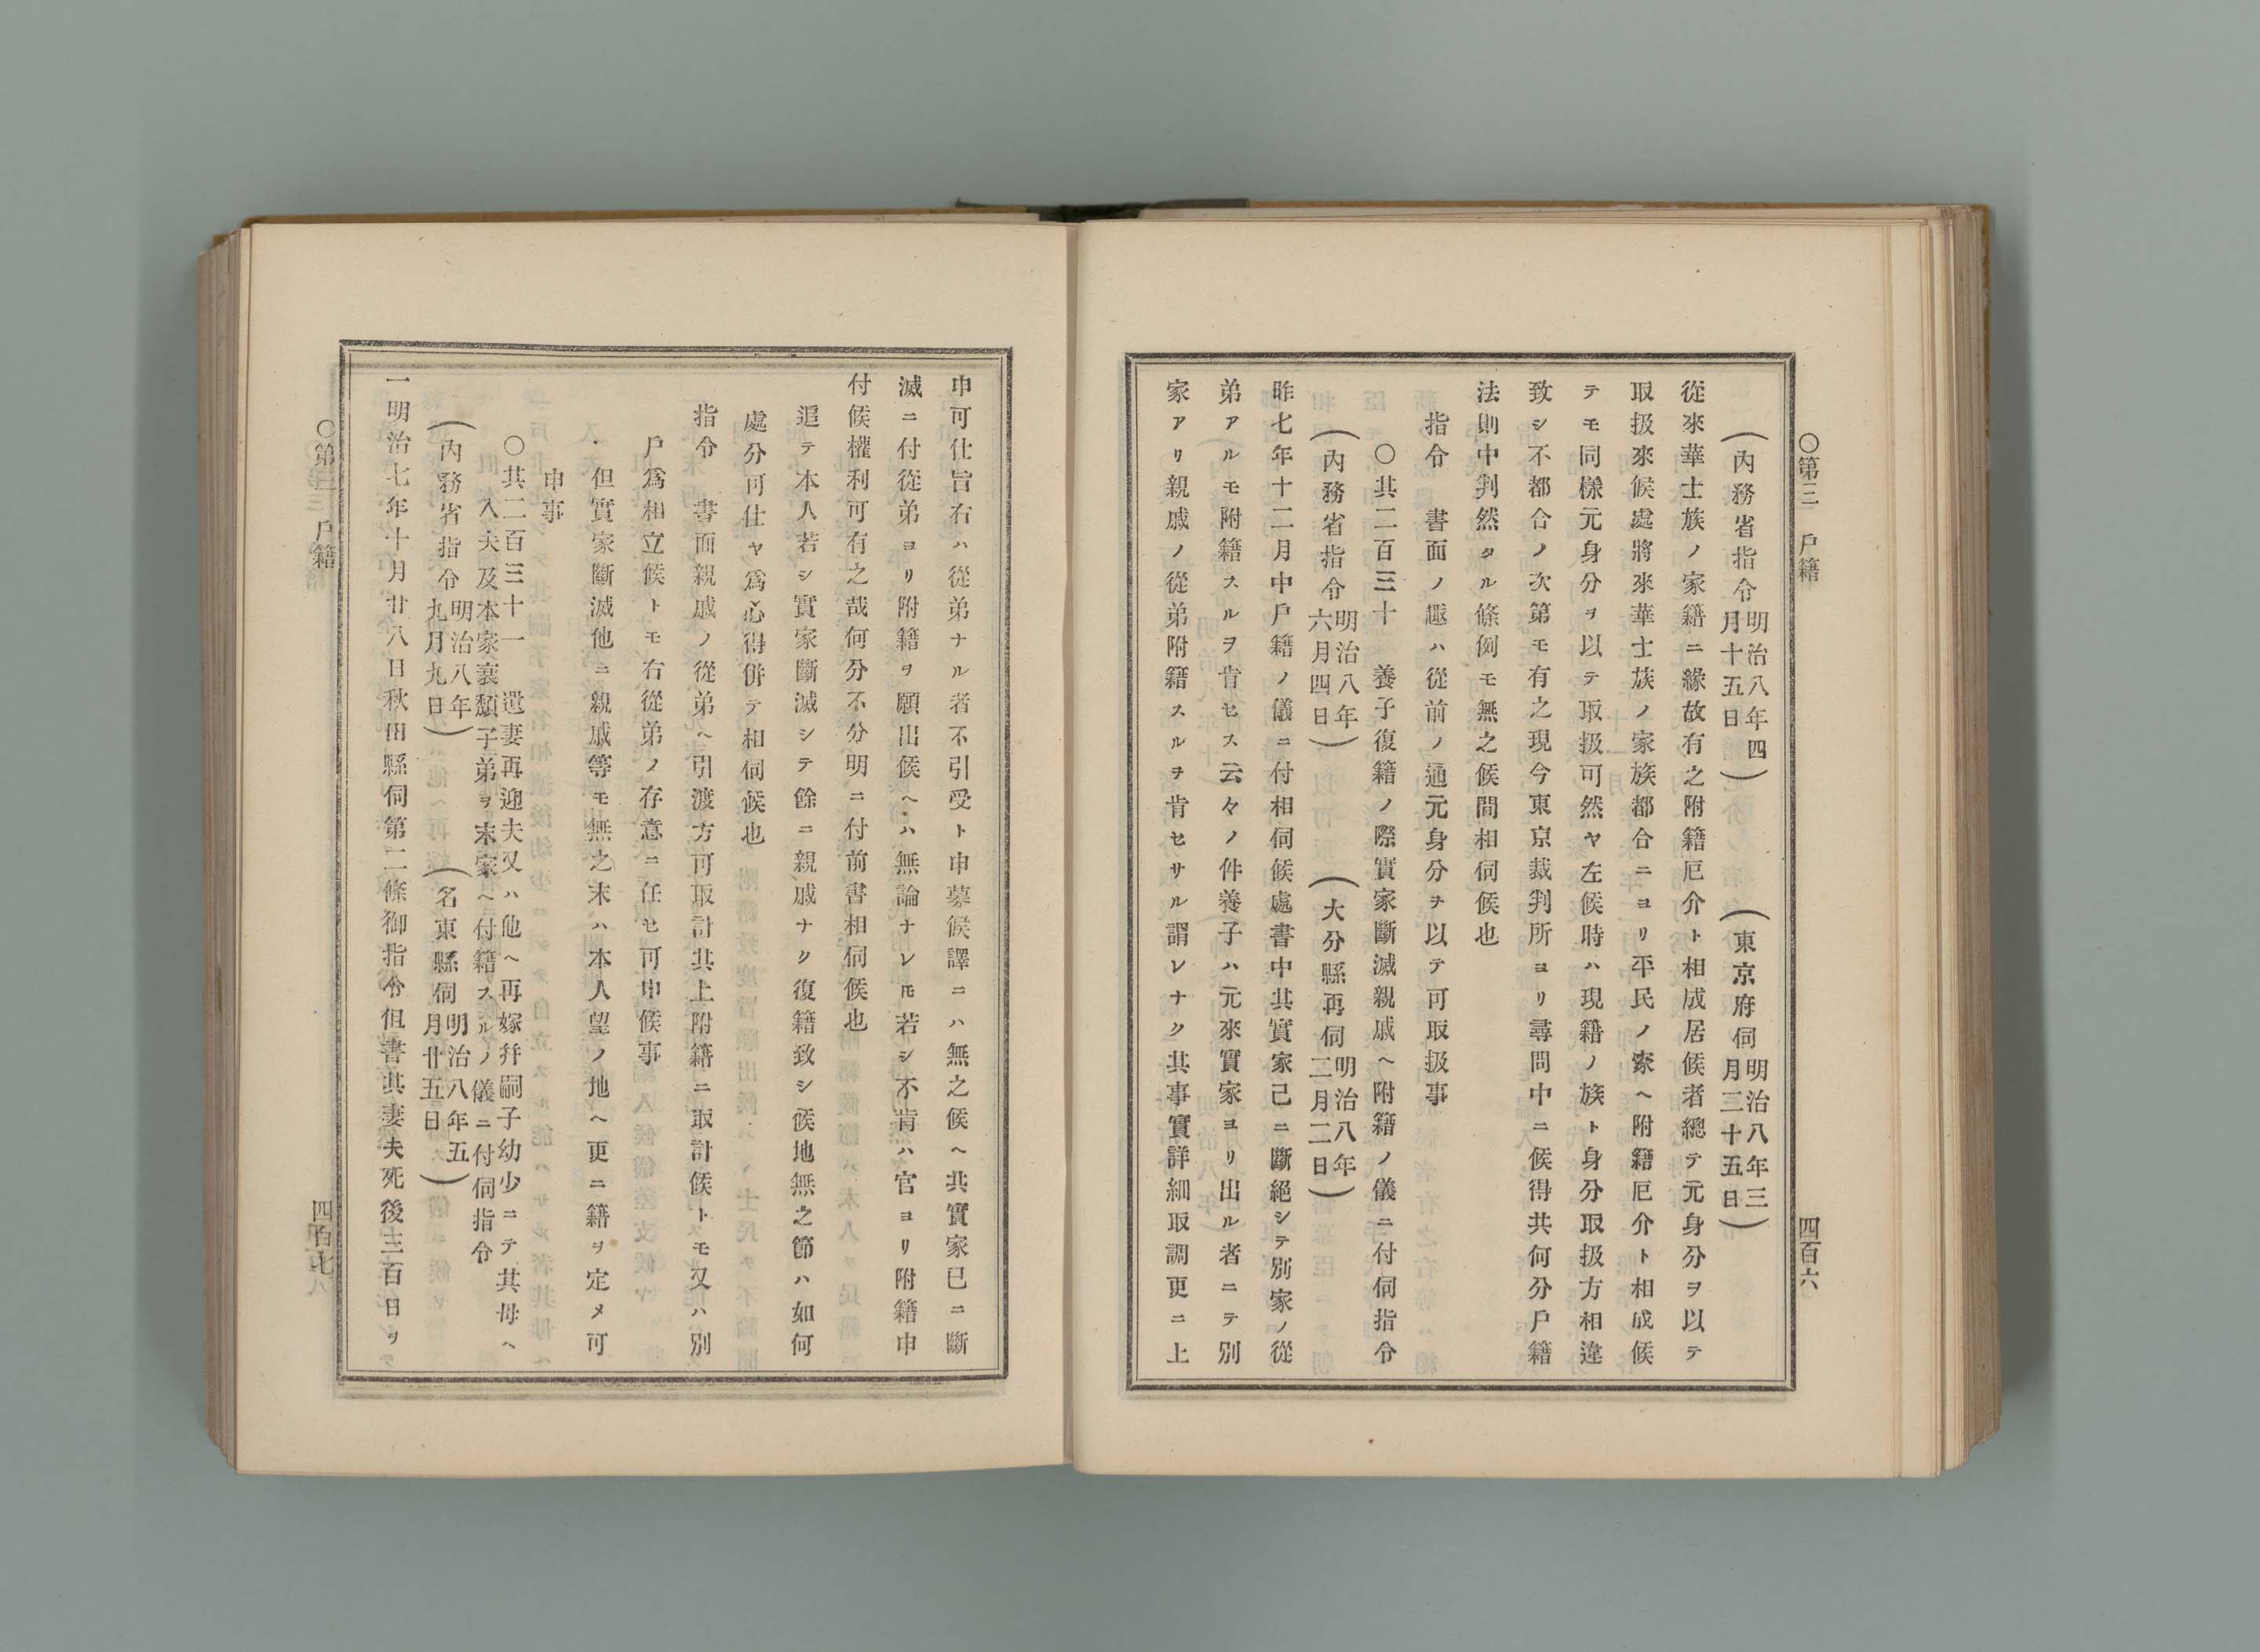 〇第三　戶籍　四百六
（內務省指令明治八年四月十五日）　（東京府伺明治八年三月三十五日）
從來華士族ノ家籍ニ緣故有之附籍厄介ト相成居候者總テ元身分ヲ以テ
取扱來候處將來華士族ノ家族都合ニヨリ平民ノ家ヘ附籍厄介ト相成候
テモ同樣元身分ヲ以テ取扱可然ヤ左候時ハ現籍ノ族ト身分取扱方相違
致シ不都合ノ次第モ有之現今東京裁判所ヨリ尋問中ニ候得共何分戶籍
法則中判然タル條例モ無之候間相伺候也
指令　書面ノ趣ハ從前ノ通元身分ヲ以テ可取扱事
〇其二百三十　養子復籍ノ際實家斷滅親戚ヘ附籍ノ儀ニ付伺指令
（內務省指令明治八年六月四日）　（大分縣再伺明治八年二月二日）
昨七年十二月中戶籍ノ儀ニ付相伺候處書中其實家己ニ斷絕シテ別家ノ從
弟アルモ附籍スルヲ肯セス云々ノ件養子ハ元來實家ヨリ出ル者ニテ別
家アリ親戚ノ從弟附籍スルヲ肯セサル謂レナク其事實詳細取調更ニ上
申可仕旨右ハ從弟ナル者不引受ト申募候譯ニハ無之候ヘ共實家已ニ斷
滅ニ付從弟ヨリ附籍ヲ願出候ヘハ無論ナレモ若シ不肯ハ官ヨリ附籍申
付候權利可有之哉何分不分明ニ付前書相伺候也
追テ本人若シ實家斷滅シテ餘ニ親戚ナク復籍致シ候地無之節ハ如何
處分可仕ヤ爲心得併テ相伺候也
指令　書面親戚ノ從弟ヘ引渡方可取計其上附籍ニ取計候トモ又ハ別
戶爲相立候トモ右從弟ノ存意ニ任セ可申候事
但實家斷滅他ニ親戚等モ無之末ハ本人望ノ地ヘ更ニ籍ヲ定メ可
申事
〇其二百三十一　遺妻再迎夫又ハ他ヘ再嫁幷嗣子幼少ニテ其母ヘ
入夫及本家衰頽子弟ヲ末家ヘ付籍スルノ儀ニ付伺指令
（內務省指令明治八年九月九日）　（名東縣伺明治八年五月廿五日）
一明治七年十月廿八日秋田縣伺第二條御指令但書其妻夫死後三百日ヲ
〇第三　戶籍　四百七